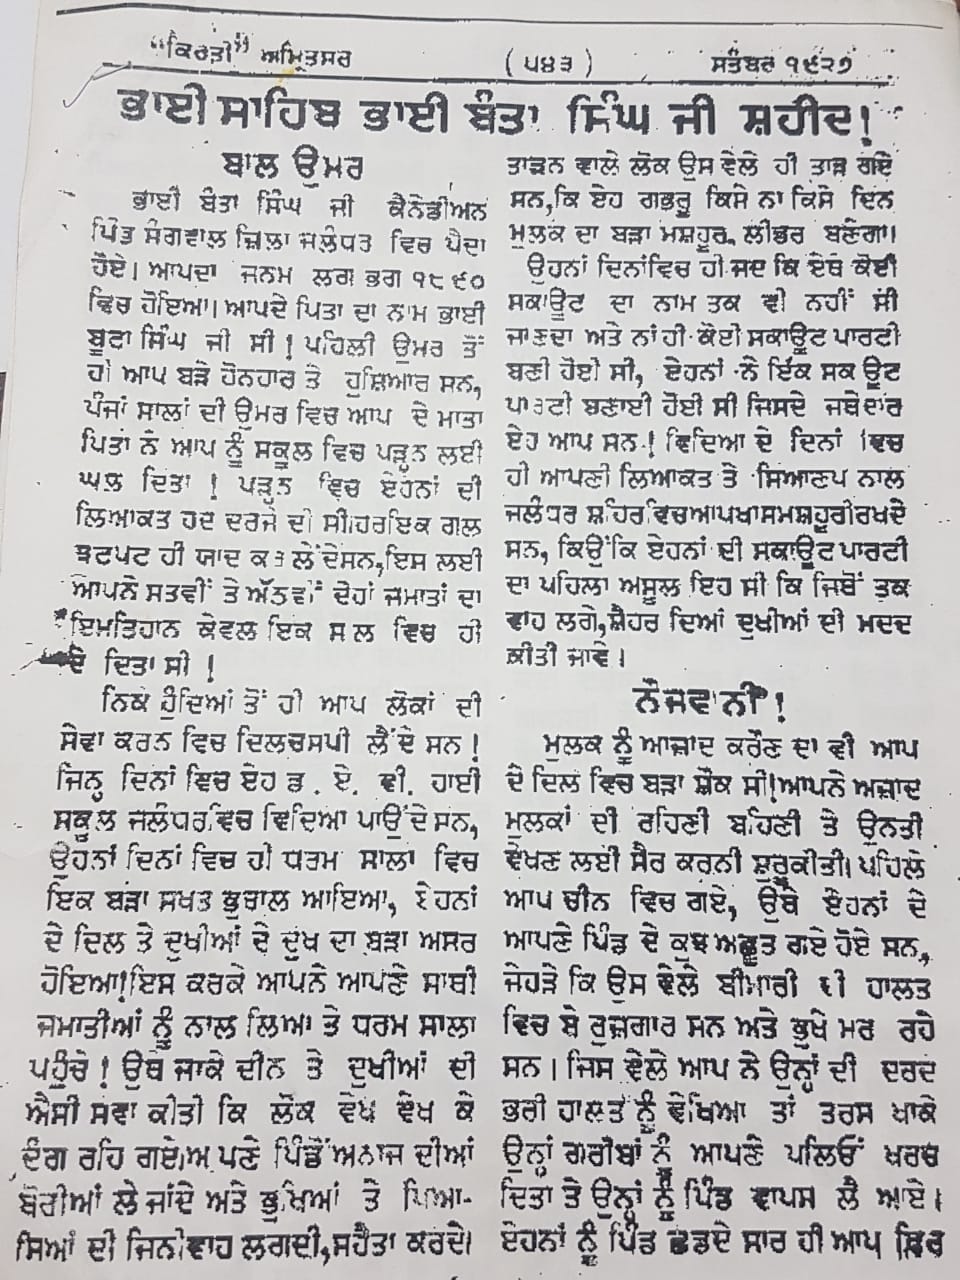 “ਕਿਰਤੀ” ਅਮ੍ਰਿਤਸਰ (੫੪੩) ਸਤੰਬਰ ੧੯੨੭
ਭਾਈ ਸਾਹਿਬ ਭਾਈ ਬੰਤਾ ਸਿੰਘ ਜੀ ਸ਼ਹੀਦ!
ਬਾਲ ਉਮਰ
ਭਾਈ ਬੰਤਾ ਸਿੰਘ ਜੀ ਕੈਨੇਡੀਅਨ
ਪਿੰਡ ਸੰਗਵਾਲ ਜ਼ਿਲਾ ਜਲੰਧਰ ਵਿਚ ਪੈਦਾ
ਹੋਏ। ਆਪਦਾ ਜਨਮ ਲਗ ਭਗ ੧੮੯੦
ਵਿਚ ਹੋਇਆ। ਆਪਦੇ ਪਿਤਾ ਦਾ ਨਾਮ ਭਾਈ
ਬੂਟਾ ਸਿੰਘ ਜੀ ਸੀ! ਪਹਿਲੀ ਉਮਰ ਤੋਂ
ਹੀ ਆਪ ਬੜੇ ਹੋਨਹਾਰ ਤੇ ਹੁਸ਼ਿਆਰ ਸਨ,
ਪੰਜਾਂ ਸਾਲਾਂ ਦੀ ਉਮਰ ਵਿਚ ਆਪ ਦੇ ਮਾਤਾ
ਪਿਤਾ ਨੇ ਆਪ ਨੂੰ ਸਕੂਲ ਵਿਚ ਪੜ੍ਹਨ ਲਈ
ਘਲ ਦਿਤਾ! ਪੜ੍ਹਨ ਵਿਚ ਏਹਨਾਂ ਦੀ
ਲਿਆਕਤ ਹਦ ਦਰਜੇ ਦੀ ਸੀ।ਹਰਇਕ ਗਲ
ਝਟਪਟ ਹੀ ਯਾਦ ਕਰ ਲੇਂਦੇਸਨ,ਇਸ ਲਈ
ਆਪਨੇ ਸਤਵੀਂ ਤੇ ਅੱਠਵੀਂ ਦੋਹਾਂ ਜਮਾਤਾਂ ਦਾ
ਇਮਤਿਹਾਨ ਕੇਵਲ ਇਕ ਸਾਲ ਵਿਚ ਹੀ
ਦੇ ਦਿਤਾ ਸੀ!
ਨਿਕੇ ਹੁੰਦਿਆਂ ਤੋਂ ਹੀ ਆਪ ਲੋਕਾਂ ਦੀ
ਸੇਵਾ ਕਰਨ ਵਿਚ ਦਿਲਚਸਪੀ ਲੈਂਦੇ ਸਨ!
ਜਿਨ੍ਹ ਦਿਨਾਂ ਵਿਚ ਏਹ ਡ. ਏ. ਵੀ. ਹਾਈ
ਸਕੂਲ ਜਲੰਧਰਵਿਚ ਵਿਦਿਆ ਪਾਉਂਦੇ ਸਨ,
ਉਹਨਾਂ ਦਿਨਾਂ ਵਿਚ ਹੀ ਧਰਮ ਸਾਲਾ ਵਿਚ
ਇਕ ਬੜਾ ਸਖਤ ਭੁਚਾਲ ਆਇਆ, ਏਹਨਾਂ
ਦੇ ਦਿਲ ਤੇ ਦੁਖੀਆਂ ਦੇ ਦੁਖ ਦਾ ਬੜਾ ਅਸਰ
ਹੋਇਆ!ਇਸ ਕਰਕੇ ਆਪਨੇ ਆਪਣੇ ਸਾਥੀ
ਜਮਾਤੀਆਂ ਨੂੰ ਨਾਲ ਲਿਆ ਤੇ ਧਰਮ ਸਾਲਾ
ਪਹੁੰਚੇ! ਉਥੇ ਜਾਕੇ ਦੀਨ ਤੇ ਦੁਖੀਆਂ ਦੀ
ਐਸੀ ਸੇਵਾ ਕੀਤੀ ਕਿ ਲੋਕ ਵੇਖ ਵੇਖ ਕੇ
ਦੰਗ ਰਹਿ ਗਏ।ਅਪਣੇ ਪਿੰਡੋਂ ਅਨਾਜ ਦੀਆਂ
ਬੋਰੀਆਂ ਲੇ ਜਾਂਦੇ ਅਤੇ ਭੁਖਿਆਂ ਤੇ ਪਿਆ-
ਸਿਆਂ ਦੀ ਜਿਨੀਵਾਹ ਲਗਦੀ,ਸਹੈਤਾ ਕਰਦੇ।
ਤਾੜਨ ਵਾਲੇ ਲੋਕ ਉਸ ਵੇਲੇ ਹੀ ਤਾੜ ਗਏ
ਸਨ,ਕਿ ਏਹ ਗਭਰੂ ਕਿਸੇ ਨਾ ਕਿਸੇ ਦਿਨ
ਮੁਲਕ ਦਾ ਬੜਾ ਮਸ਼ਹੂਰ ਲੀਡਰ ਬਣੇਗਾ।
ਉਹਨਾਂ ਦਿਨਾਂਵਿਚ ਹੀ ਜਦ ਕਿ ਏਥੇ ਕੋਈ
ਸਕਾਊਟ ਦਾ ਨਾਮ ਤਕ ਵੀ ਨਹੀਂ ਸੀ
ਜਾਣਦਾ ਅਤੇ ਨਾਂ ਹੀ ਕੋਈ ਸਕਾਊਟ ਪਾਰਟੀ
ਬਣੀ ਹੋਈ ਸੀ, ਏਹਨਾਂ ਨੇ ਇਕ ਸਕਾਊਟ
ਪਾਰਟੀ ਬਣਾਈ ਹੋਈ ਸੀ ਜਿਸਦੇ ਜਥੇਦਾਰ
ਏਹ ਆਪ ਸਨ! ਵਿਦਿਆ ਦੇ ਦਿਨਾਂ ਵਿਚ
ਹੀ ਆਪਣੀ ਲਿਆਕਤ ਤੇ ਸਿਆਣਪ ਨਾਲ
ਜਲੰਧਰ ਸ਼ਹਿਰਵਿਚਆਪਖਾਸਮਸ਼ਹੂਰੀਰਖਦੇ
ਸਨ, ਕਿਉਂਕਿ ਏਹਨਾਂ ਦੀ ਸਕਾਊਟ ਪਾਰਟੀ
ਦਾ ਪਹਿਲਾ ਅਸੂਲ ਇਹ ਸੀ ਕਿ ਜਿਥੋਂ ਤਕ
ਵਾਹ ਲਗੇ,ਸ਼ੈਹਰ ਦਿਆਂ ਦੁਖੀਆਂ ਦੀ ਮਦਦ
ਕੀਤੀ ਜਾਵੇ।
ਨੌਜਵਾਨੀ!
ਮੁਲਕ ਨੂੰ ਆਜ਼ਾਦ ਕਰੌਣ ਦਾ ਵੀ ਆਪ
ਦੇ ਦਿਲ ਵਿਚ ਬੜਾ ਸ਼ੌਕ ਸੀ!ਆਪਨੇ ਅਜ਼ਾਦ
ਮੁਲਕਾਂ ਦੀ ਰਹਿਣੀ ਬਹਿਣੀ ਤੇ ਉਨਤੀ
ਵੇਖਣ ਲਈ ਸੈਰ ਕਰਨੀ ਸ਼ੁਰੂਕੀਤੀ। ਪਹਿਲੇ
ਆਪ ਚੀਨ ਵਿਚ ਗਏ, ਉਥੇ ਏਹਨਾਂ ਦੇ
ਆਪਣੇ ਪਿੰਡ ਦੇ ਕੁਝ ਅਛੂਤ ਗਏ ਹੋਏ ਸਨ,
ਜੇਹੜੇ ਕਿ ਉਸ ਵੇਲੇ ਬੀਮਾਰੀ ਦੀ ਹਾਲਤ
ਵਿਚ ਬੇ ਰੁਜ਼ਗਾਰ ਸਨ ਅਤੇ ਭੁਖੇ ਮਰ ਰਹੇ
ਸਨ। ਜਿਸ ਵੇਲੇ ਆਪ ਨੇ ਉਨ੍ਹਾਂ ਦੀ ਦਰਦ
ਭਰੀ ਹਾਲਤ ਨੂੰ ਵੇਖਿਆ ਤਾਂ ਤਰਸ ਖਾਕੇ
ਉਨ੍ਹਾਂ ਗਰੀਬਾਂ ਨੂੰ ਆਪਣੇ ਪਲਿਓਂ ਖਰਚ
ਦਿਤਾ ਤੇ ਉਨ੍ਹਾਂ ਨੂੰ ਪਿੰਡ ਵਾਪਸ ਲੈ ਆਏ।
ਏਹਨਾਂ ਨੂੰ ਪਿੰਡ ਛਡਦੇ ਸਾਰ ਹੀ ਆਪ ਫਿਰ